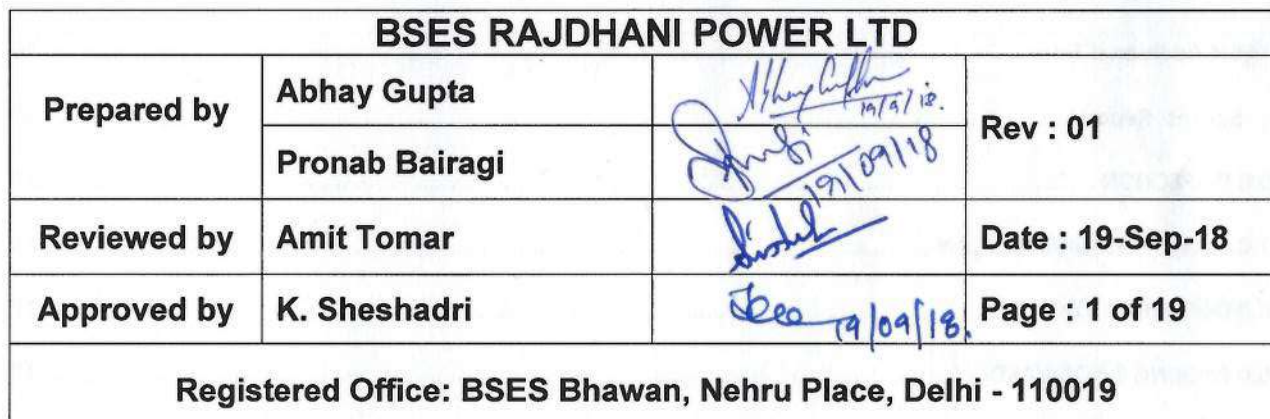 BSES RAJDHANI POWER LTD
Prepared by
Abhay Gupta
Abhay Gupta
19/9/18.
Rev : 01
Pronab Bairagi
19/09/18
Reviewed by
Amit Tomar
Date : 19-Sep-18
Approved by
K. Sheshadri
19/09/18.
Page : 1 of 19
Registered Office: BSES Bhawan, Nehru Place, Delhi - 110019